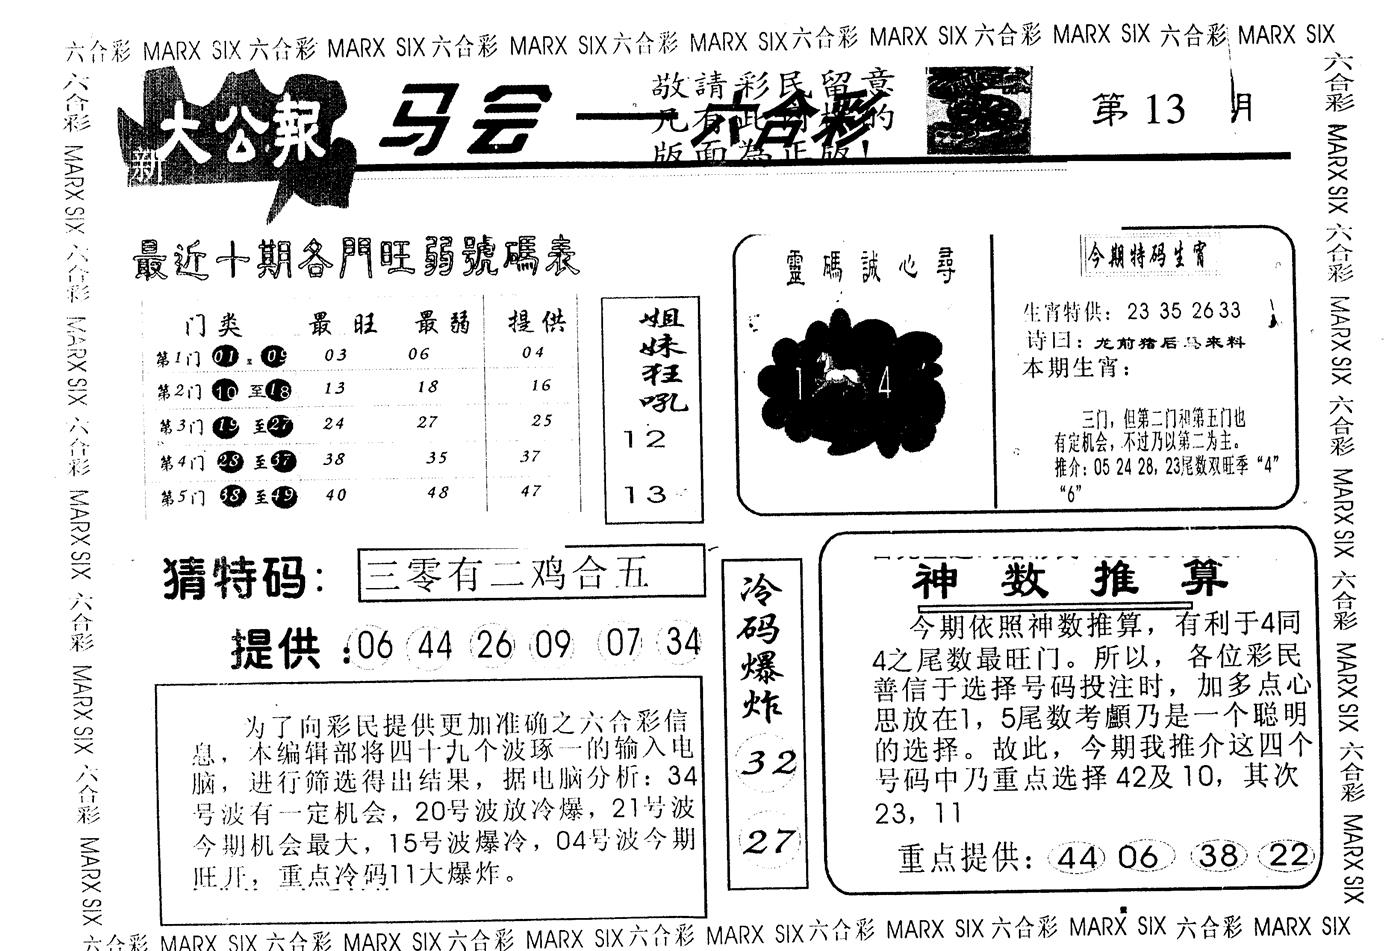 六合彩 MARX SIX 六合彩 MARX SIX 六合彩 MARX SIX 六合彩 MARX SIX 六合彩 MARX SIX 六合彩 MARX SIX 六合彩 MARX SIX
新大公報
马会一六合彩
敬請彩民留意
的
版面為正版!
第13 月
最近十期各門旺弱號碼表
门类 最旺 最弱 提供
第1门 01 至 09 03 06 04
第2门 10 至 18 13 18 16
第3门 19 至 27 24 27 25
第4门 28 至 37 38 35 37
第5门 38 至 49 40 48 47
姐妹狂吼
12
13
靈碼誠心尋
1 4
今期特码生宵
生宵特供：23 35 26 33
诗曰：龙前猪后马来料
本期生宵：
三门，但第二门和第五门也
有定机会，不过乃以第二为主。
推介：05 24 28，23尾数双旺季“4”
“6”
猜特码：三零有二鸡合五
提供：06 44 26 09 07 34
为了向彩民提供更加准确之六合彩信
息，本编辑部将四十九个波琢一的输入电
脑，进行筛选得出结果，据电脑分析：34
号波有一定机会，20号波放冷爆，21号波
今期机会最大，15号波爆冷，04号波今期
旺开，重点冷码11大爆炸。
冷码爆炸
32
27
神数推算
今期依照神数推算，有利于4同
4之尾数最旺门。所以，各位彩民
善信于选择号码投注时，加多点心
思放在1，5尾数考顱乃是一个聪明
的选择。故此，今期我推介这四个
号码中乃重点选择42及10，其次
23，11
重点提供：44 06 38 22
六合彩 MARX SIX 六合彩 MARX SIX 六合彩 MARX SIX 六合彩 MARX SIX 六合彩 MARX SIX
六合彩 MARX SIX 六合彩 MARX SIX 六合彩 MARX SIX 六合彩 MARX SIX 六合彩 MARX SIX
六合彩 MARX SIX 六合彩 MARX SIX 六合彩 MARX SIX 六合彩 MARX SIX 六合彩 MARX SIX 六合彩 MARX SIX 六合彩 MARX SIX